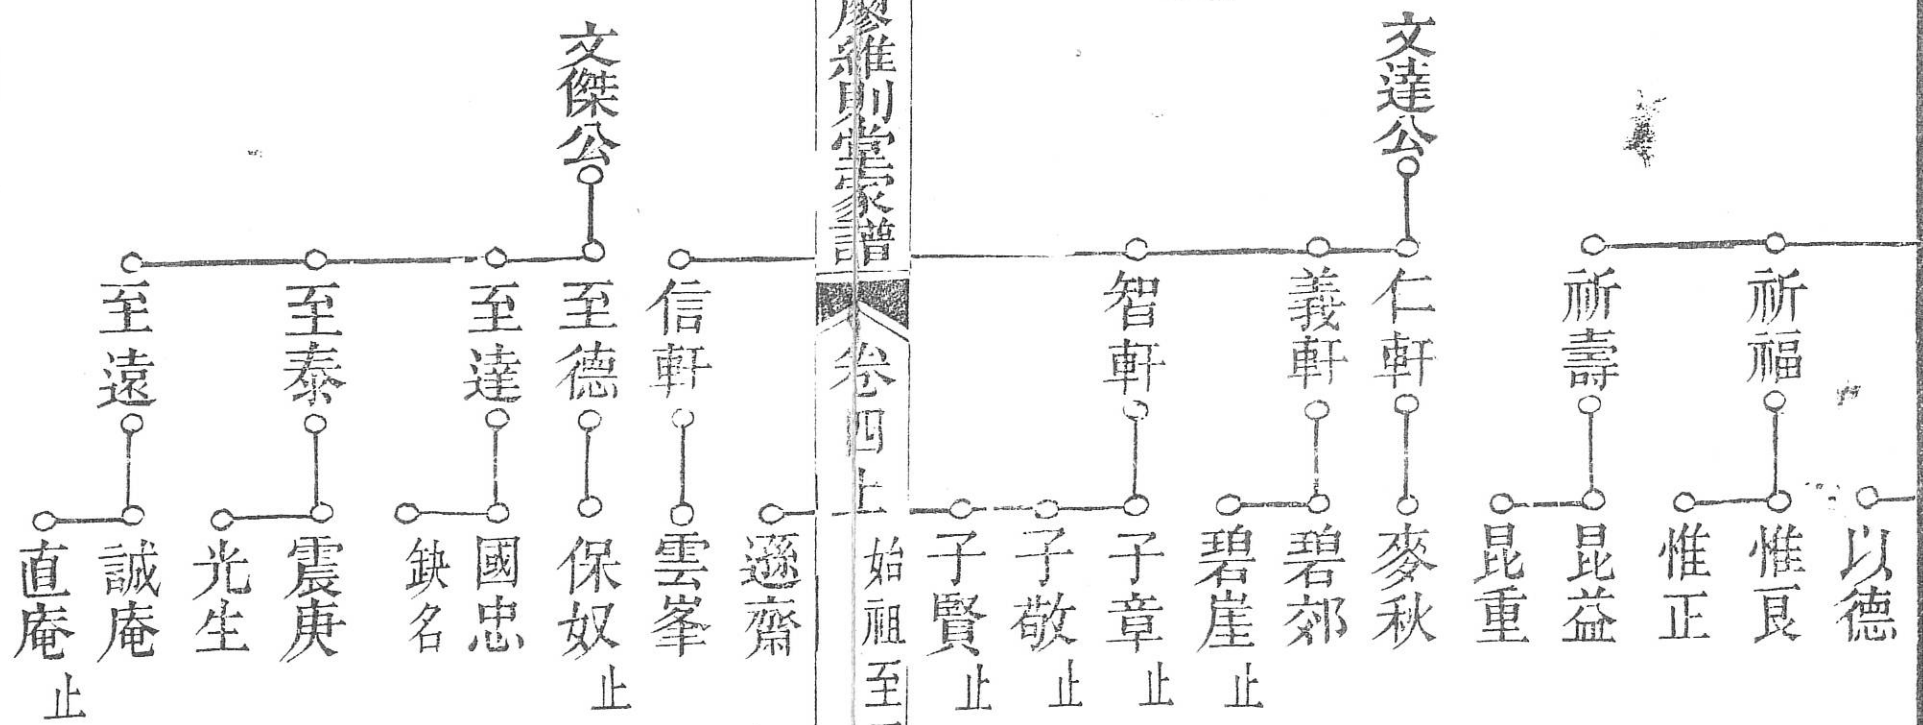 文達公
祈福
祈壽
仁軒
義軒
智軒
以德
惟良
惟正
昆益
昆重
麥秋
碧郊
碧崖 止
子章 止
子敬 止
子賢 止
遜齋
廖維則堂家譜
卷四上
始祖至
文傑公
信軒
至德
至達
至泰
至遠
雲峯
保奴 止
國忠
缺名
震庚
光生
誠庵
直庵 止